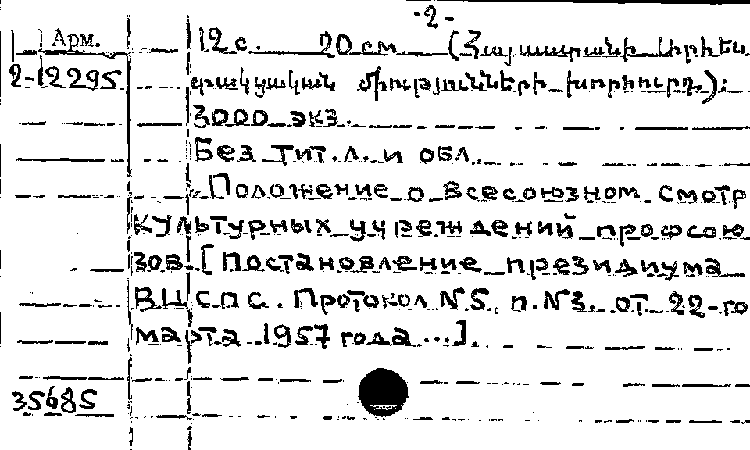 -2-
Арм. 12 с. 20 см (Հայաստանի
2-12295 միությունների խորհուրդ):
3000 экз.
Без тит. л. и обл.
"Положение о Всесоюзном смотр
культурных учреждений профсою
зов. [Постановление президиума
ВЦСПС. Протокол N5, п. N3. от 22-го
марта 1957 года ...].
35685